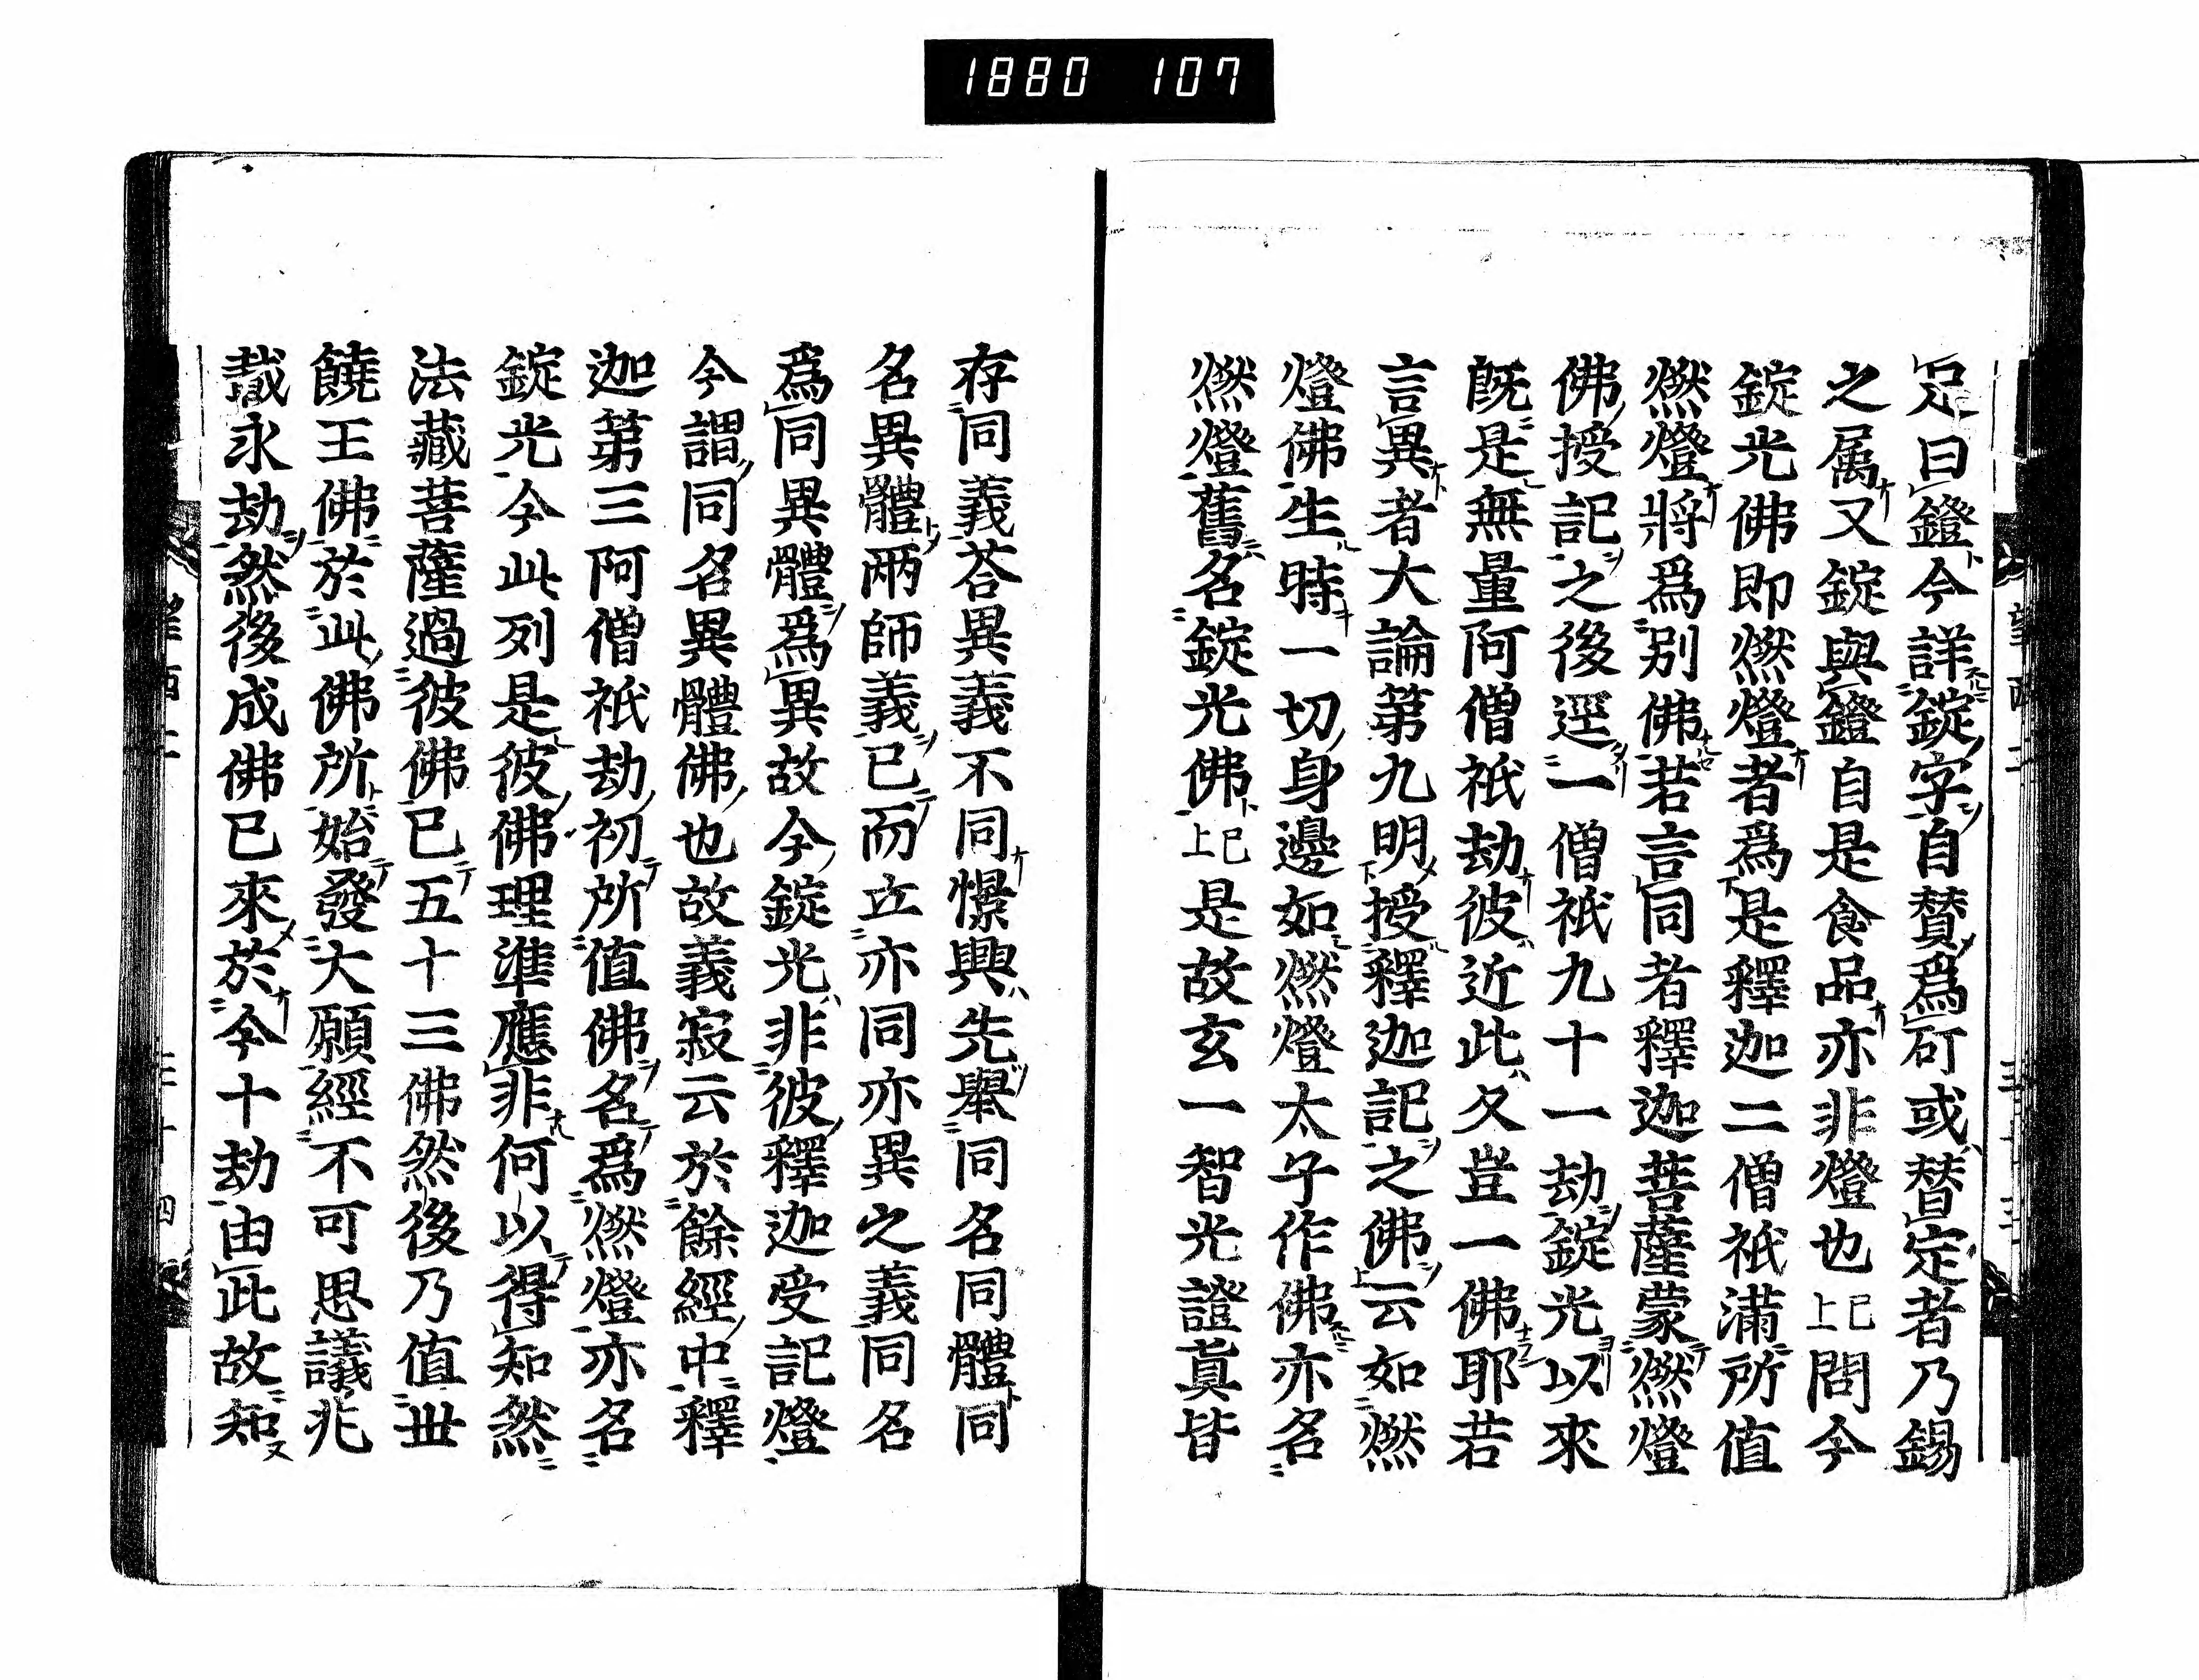 1880 107
足曰鐙今詳錠字自賛爲可或替定者乃錫
之属又錠與鐙自是食品亦非燈也已上問今
錠光佛即燃燈者爲是釋迦二僧祇滿所值
燃燈將爲別佛若言同者釋迦菩薩蒙燃燈
佛授記之後逕一僧祇九十一劫錠光以來
既是無量阿僧祇劫彼近此久豈一佛耶若
言異者大論第九明授釋迦記之佛云如燃
燈佛生時一切身邊如燃燈太子作佛亦名
燃燈舊名錠光佛已上是故玄一智光證眞皆
存同義荅異義不同憬興先舉同名同體同
名異體兩師義已而立亦同亦異之義同名
爲同異體爲異故今錠光非彼釋迦受記燈
今謂同名異體佛也故義寂云於餘經中釋
迦第三阿僧祇劫初所值佛名爲燃燈亦名
錠光今此列是彼佛理準應非何以得知然
法藏菩薩過彼佛已五十三佛然後乃值丗
饒王佛於此佛所始發大願經不可思議兆
載永劫然後成佛已來於今十劫由此故知